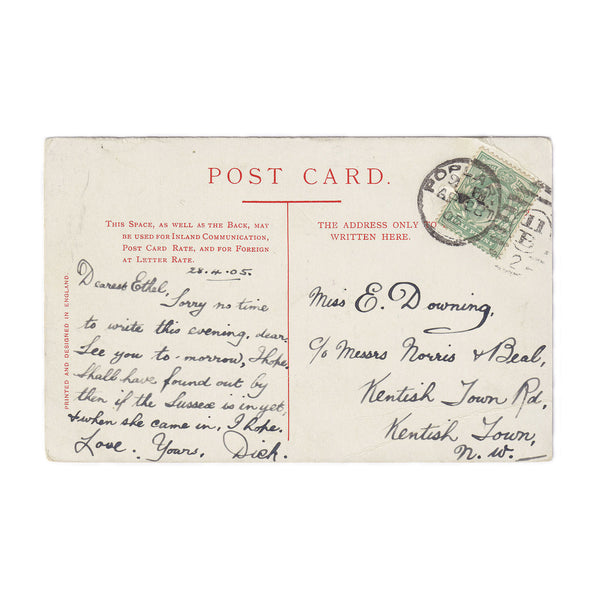 POST CARD.
THIS SPACE, AS WELL AS THE BACK, MAY
BE USED FOR INLAND COMMUNICATION,
POST CARD RATE, AND FOR FOREIGN
AT LETTER RATE.
THE ADDRESS ONLY
WRITTEN HERE.
PRINTED AND DESIGNED IN ENGLAND.
28.4.05.
Dearest Ethel,
Sorry no time
to write this evening, dear.
See you to-morrow, I hope.
Shall have found out by
then if the Sussex is in yet,
& when she came in, I hope.
Love. Yours, Dick.
Miss E. Downing,
c/o Messrs Norris & Beal,
Kentish Town Rd,
Kentish Town,
N.W.
POP
AP 28
05
11
2